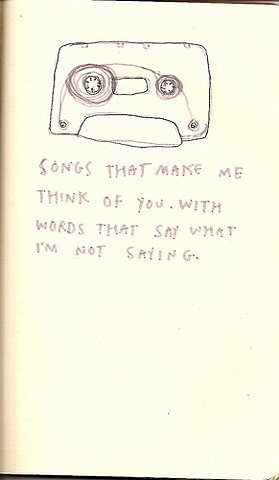 SONGS THAT MAKE ME
THINK OF YOU. WITH
WORDS THAT SAY WHAT
I'M NOT SAYING.